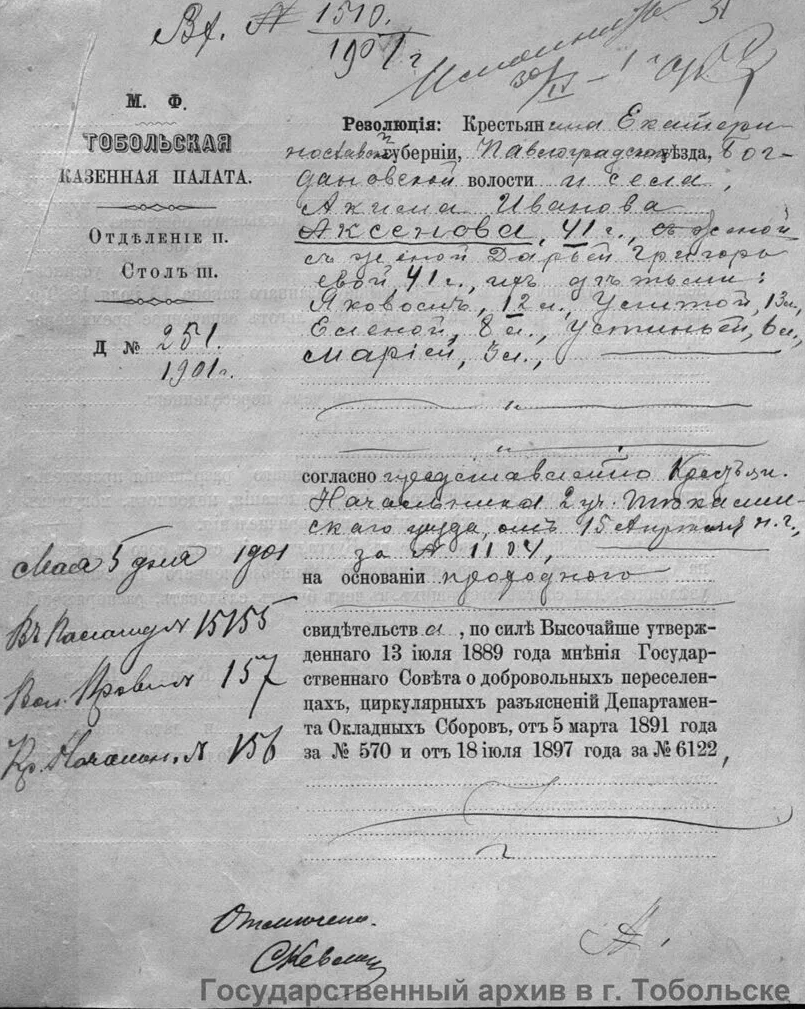 Вх. № 1510.
1901 г
Исполнить
30/IV – 1 г
М. Ф.
ТОБОЛЬСКАЯ
КАЗЕННАЯ ПАЛАТА.
ОТДѢЛЕНІЕ II.
СТОЛЪ III.
Д № 251.
1901 г.
Резолюція: Крестьянина Екатери-
нославской губерніи, Павлоградскаго уѣзда, Бог-
дановской волости и села,
Акима Иванова
Аксенова, 41 г., съ женой
съ женой Дарьей Григорь
евой, 41 г., дѣтьми:
Яковомъ, 12 л., 13 л.,
Еленой, 8 л., Устиньей, 6 л.,
Маріей, 3 л.,
"
"
согласно представленію Крестьян.
Начальника 2 уч. Тюкалин-
скаго уѣзда, отъ 15 Апрѣля н. г.,
за № 1104,
на основаніи проходного
свидѣтельства, по силѣ Высочайше утверж-
деннаго 13 іюля 1889 года мнѣнія Государ-
ственнаго Совѣта о добровольныхъ переселен-
цахъ, циркулярныхъ разъясненій Департамен-
та Окладныхъ Сборовъ, отъ 5 марта 1891 года
за № 570 и отъ 18 іюля 1897 года за № 6122,
Мая 5 дня 1901
Въ Палату № 15155
Вол. Правл. № 157
Кр. Начальн. № 156
Отмѣчено.
Государственный архив в г. Тобольске